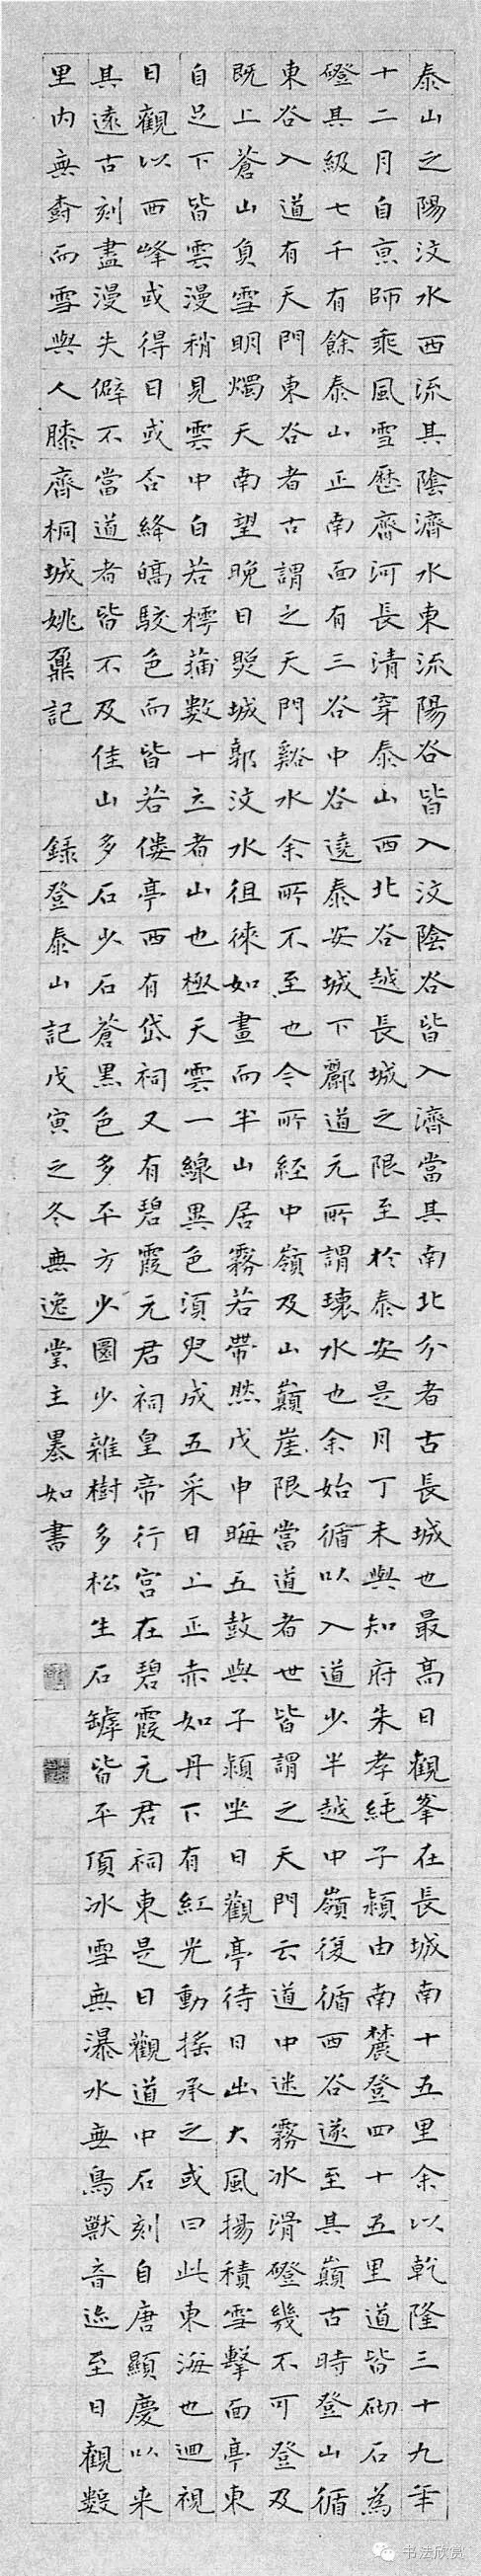 泰山之陽汶水西流其陰濟水東流陽谷皆入汶陰谷皆入濟當其南北分者古長城也最高日觀峯在長城南十五里余以乾隆三十九年
十二月自京師乘風雪歷齊河長清穿泰山西北谷越長城之限至於泰安是月丁未與知府朱孝純子潁由南麓登四十五里道皆砌石為
磴其級七千有餘泰山正南面有三谷中谷遶泰安城下酈道元所謂環水也余始循以入道少半越中嶺復循西谷遂至其巔古時登山循
東谷入道有天門東谷者古謂之天門谿水余所不至也今所經中嶺及山巔崖限當道者世皆謂之天門云道中迷霧冰滑磴幾不可登及
既上蒼山負雪明燭天南望晚日照城郭汶水徂徠如畫而半山居霧若帶然戊申晦五鼓與子潁坐日觀亭待日出大風揚積雪擊面亭東
自足下皆雲漫稍見雲中白若樗蒱數十立者山也極天雲一線異色須臾成五采日上正赤如丹下有紅光動搖承之或曰此東海也迴視
日觀以西峰或得日或否絳皜駮色而皆若僂亭西有岱祠又有碧霞元君祠皇帝行宮在碧霞元君祠東是日觀道中石刻自唐顯慶以来
其遠古刻盡漫失僻不當道者皆不及佳山多石少石蒼黑色多平方少圜少雜樹多松生石罅皆平頂冰雪無瀑水無鳥獸音迹至日觀數
里內無樹而雪與人膝齊桐城姚鼐記 錄登泰山記戊寅之冬無逸堂主墨如書
书法欣赏